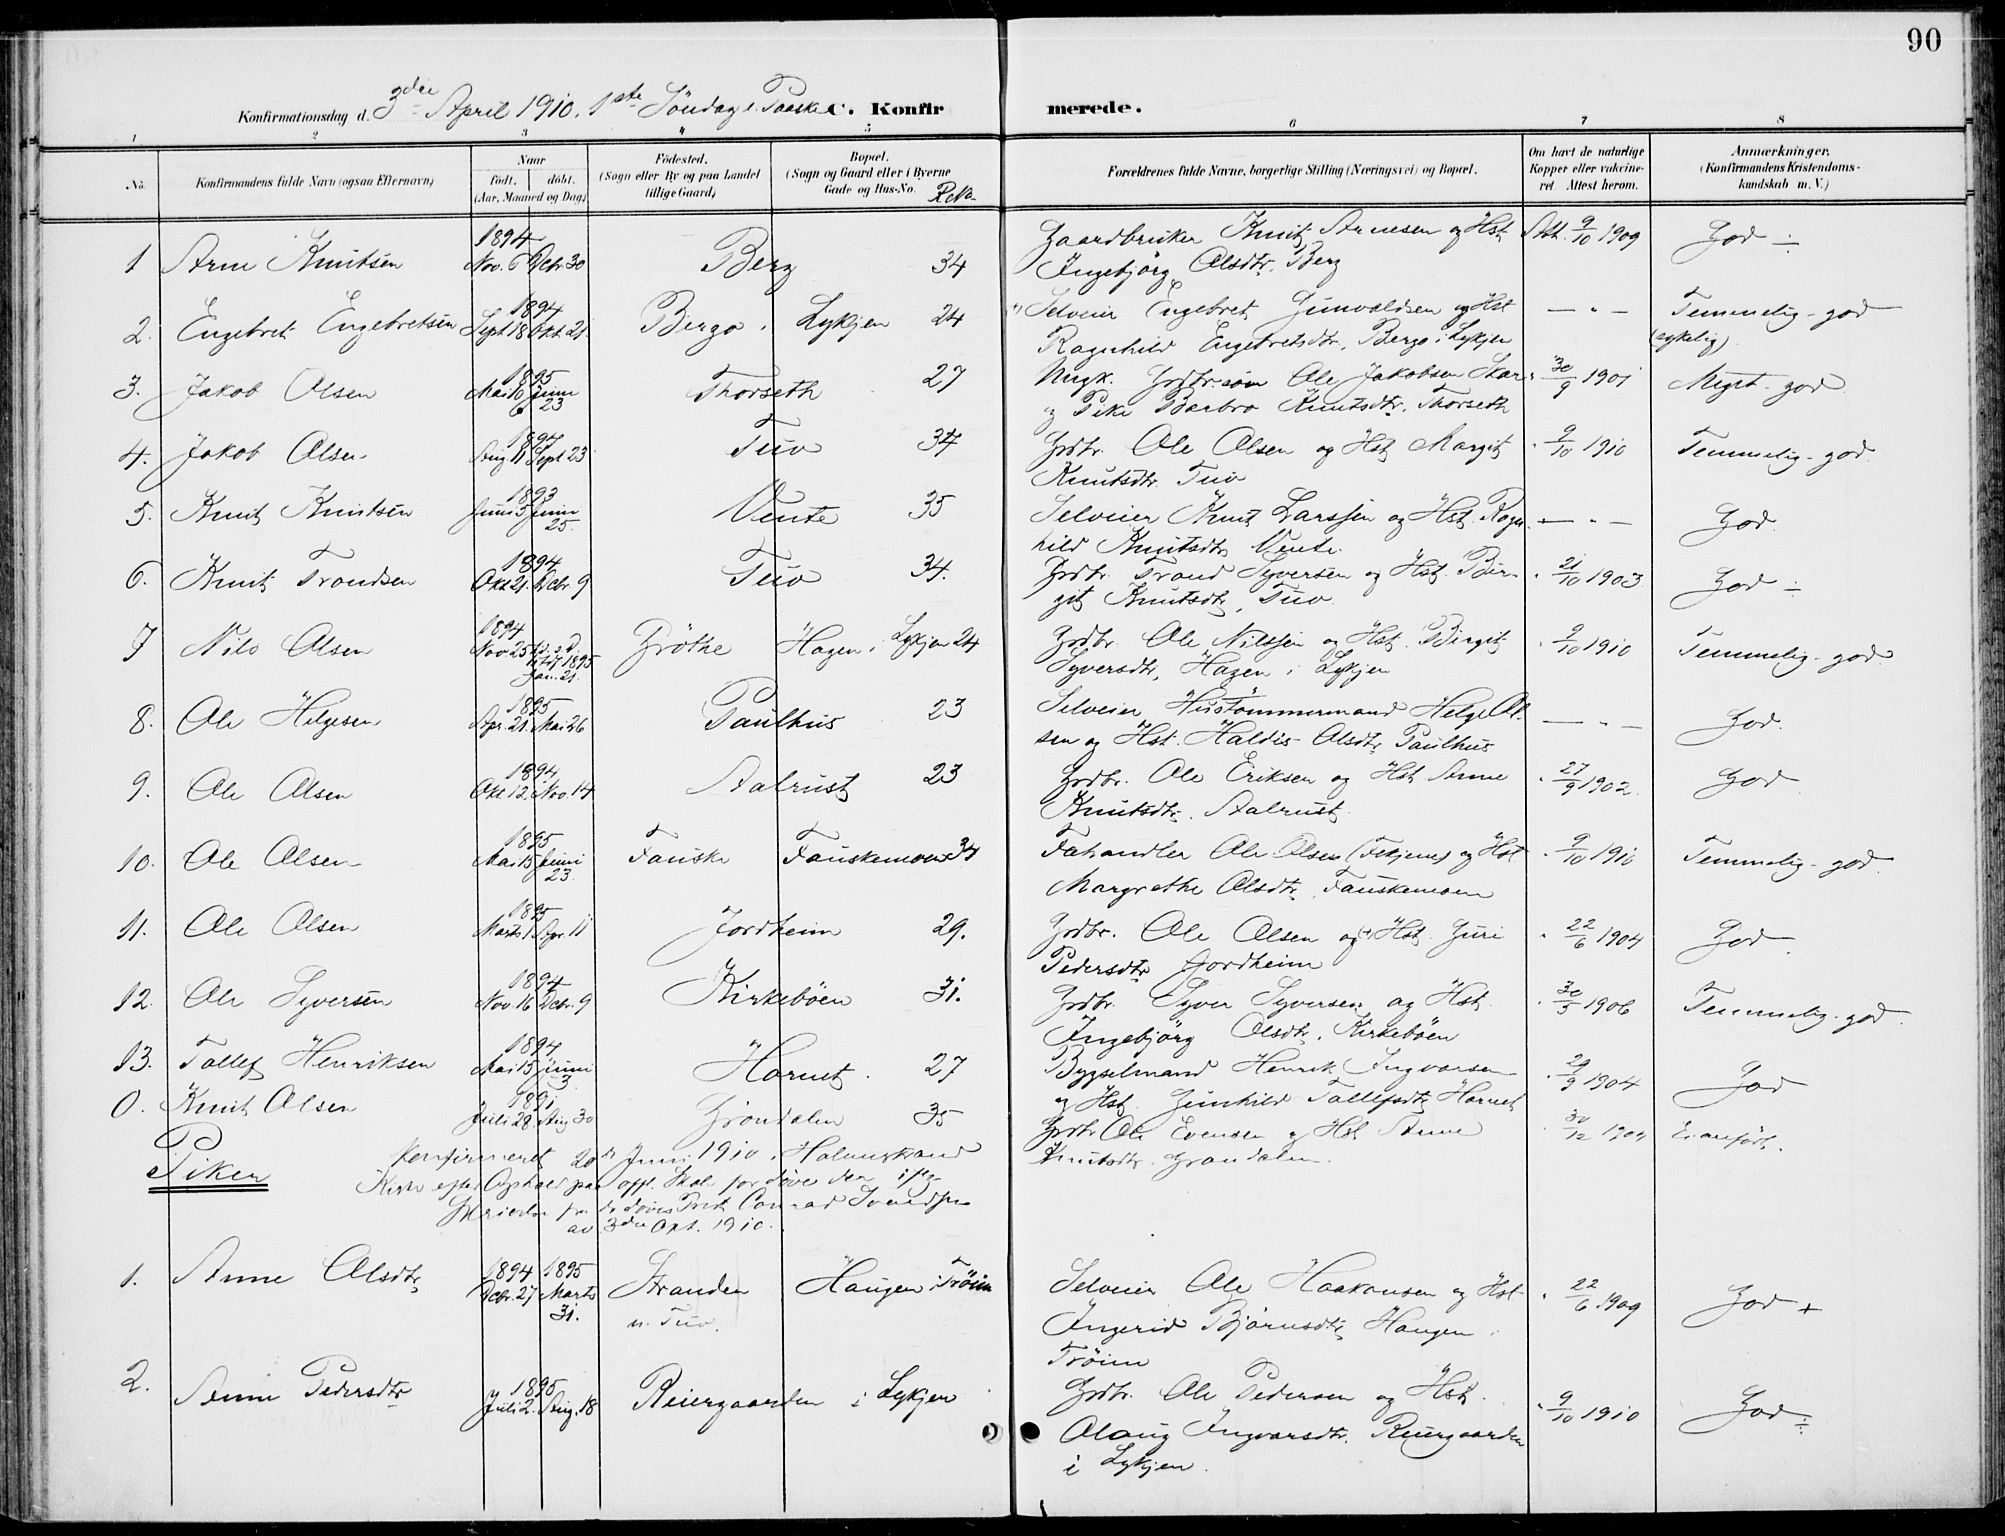 90
Konfirmationsdag d. 3die April 1910. 1ste Söndag e. Paaske C. Konfir merede.
1 2 3 " 5 6 7 8
No. Konfirmandens fulde Navn (ogsaa Efternavn) Naar födt. döbt. (Aar, Maaned og Dag) Födested. (Sogn eller By og paa Landet tillige Gaard) Bopæl. (Sogn og Gaard eller i Byerne Gade og Hus-No. Forældrenes fulde Navne, borgerlige Stilling (Næringsvei) og Bopæl. Om havt de naturlige Kopper eller vakcineret. Attest herom. Anmærkninger. (Konfirmandens Kristendomskundskab m. V.)
1 Arne Knutsen 1894 Nov. 6 Dcbr. 30 Berg 34 Gaardbruker Knut Arnesen og Hst. Att. 9/10 1909 God ÷
Ingebjörg Olsdtr. Berg
2. Engebret Engebretsen 1894 Sept 18 Okt. 21. Bergo i Lykjen 24 Selveier Engebret Gunvaldsen og Hst — " — Temmelig - god
Ragnhild Engebretsdtr. Bergo i Lykjen (sykelig)
3. Jakob Olsen 1895 Mai 6 Juni 23 Thorseth 27 Ungk. Grdbr.søn Ole Jakobsen Skar " 30/9 1901 Meget god
og Pike Barbro Knutsdtr. Thorseth
4. Jakob Olsen 1894 Aug 11 Sept 23 Tuv 34 Grdbr. Ole Olsen og Hst. Margit " 9/10 1910 Temmelig - god
Knutsdtr. Tuv
5. Knut Knutsen 1893 Juni 5 Juni 25. Vente 35 Selveier Knut Larssen og Hst. Ragn — " — God.
hild Knutsdtr. Vente.
6. Knut Trondsen 1894 Okt 21. Dcbr 9 Tuv 34. Grdbr. Trond Syversen og Hst. Bir- " 21/10 1903 God ÷
git Knutsdtr, Tuv.
7 Nils Olsen 1894 Nov 25 1895 Jan. 21. Gröthe Hagen i Lykjen 24 Grdbr. Ole Nilssen og Hst. Birgit " 9/10 1910 Temmelig - god.
Syversdtr, Hagen i Lykjen
8. Ole Helgesen 1895 Apr. 21. Mai 26 Paulhus 23 Selveier Hustömmermand Helge Ol- — " — God.
sen og Hst. Haldis Olsdtr Paulhus
9. Ole Olsen 1894 Okt. 12 Nov. 14 Aalrust 23 Grdbr. Ole Eriksen og Hst Anne " 27/9 1902. God
Knutsdtr. Aalrust.
10. Ole Olsen 1895 Mai 15 Juni 23. Fauske Fauskemoen 34 Fæhandler Ole Olsen (Fekjene) og Hst. " 9/10 1910 Temmelig - god.
Margrethe Olsdtr. Fauskemoen
11. Ole Olsen 1895 Marts 1 Apr. 11 Jordheim 29. Grdbr. Ole Olsen og Hst. Guri " 22/6 1904 God
Pedersdtr Jordheim
12. Ole Syversen 1894 Nov. 16 Dcbr. 9 Kirkeböen 31. Grdbr. Syver Syversen og Hst. " 30/5 1906 Temmelig - god.
Ingebjörg Olsdtr. Kirkebøen
13. Tollef Henriksen 1894 Mai 15 Juni 3. Hornet 27 Bygselmand Henrik Ingvarsen " 29/9 1904 God
og Hst. Gunhild Tollefsdtr Hornet
0. Knut Olsen 1891 Juli 28. Aug 30 Gröndalen 35 Grdbr Ole Evensen og Hst Anne 30/12 1904 Ei anført.
Knutsdtr. Gröndalen.
Konfirmeret 20de Juni 1910 i Holmestrand
Piker Kirke efter Ophold paa off. Skole for Døve der ifg.
av 3die Okt. 1910.
1. Anne Olsdtr 1894 Dcbr. 27 1895 Marts 31. Stranden u. Tuv. Haugen i Tröim Selveier Ole Haakonsen og Hst " 22/6 1909 God +
Ingerid Björnsdtr Haugen i
Tröim
2. Anne Pedersdtr 1895 Juli 2. Aug. 18 Reiergaarden i Lykjen Grdbr. Ole Pedersen og Hst. " 9/10 1910 God ÷
Olaug Ingvarsdtr. Reiergaarden
i Lykjen.